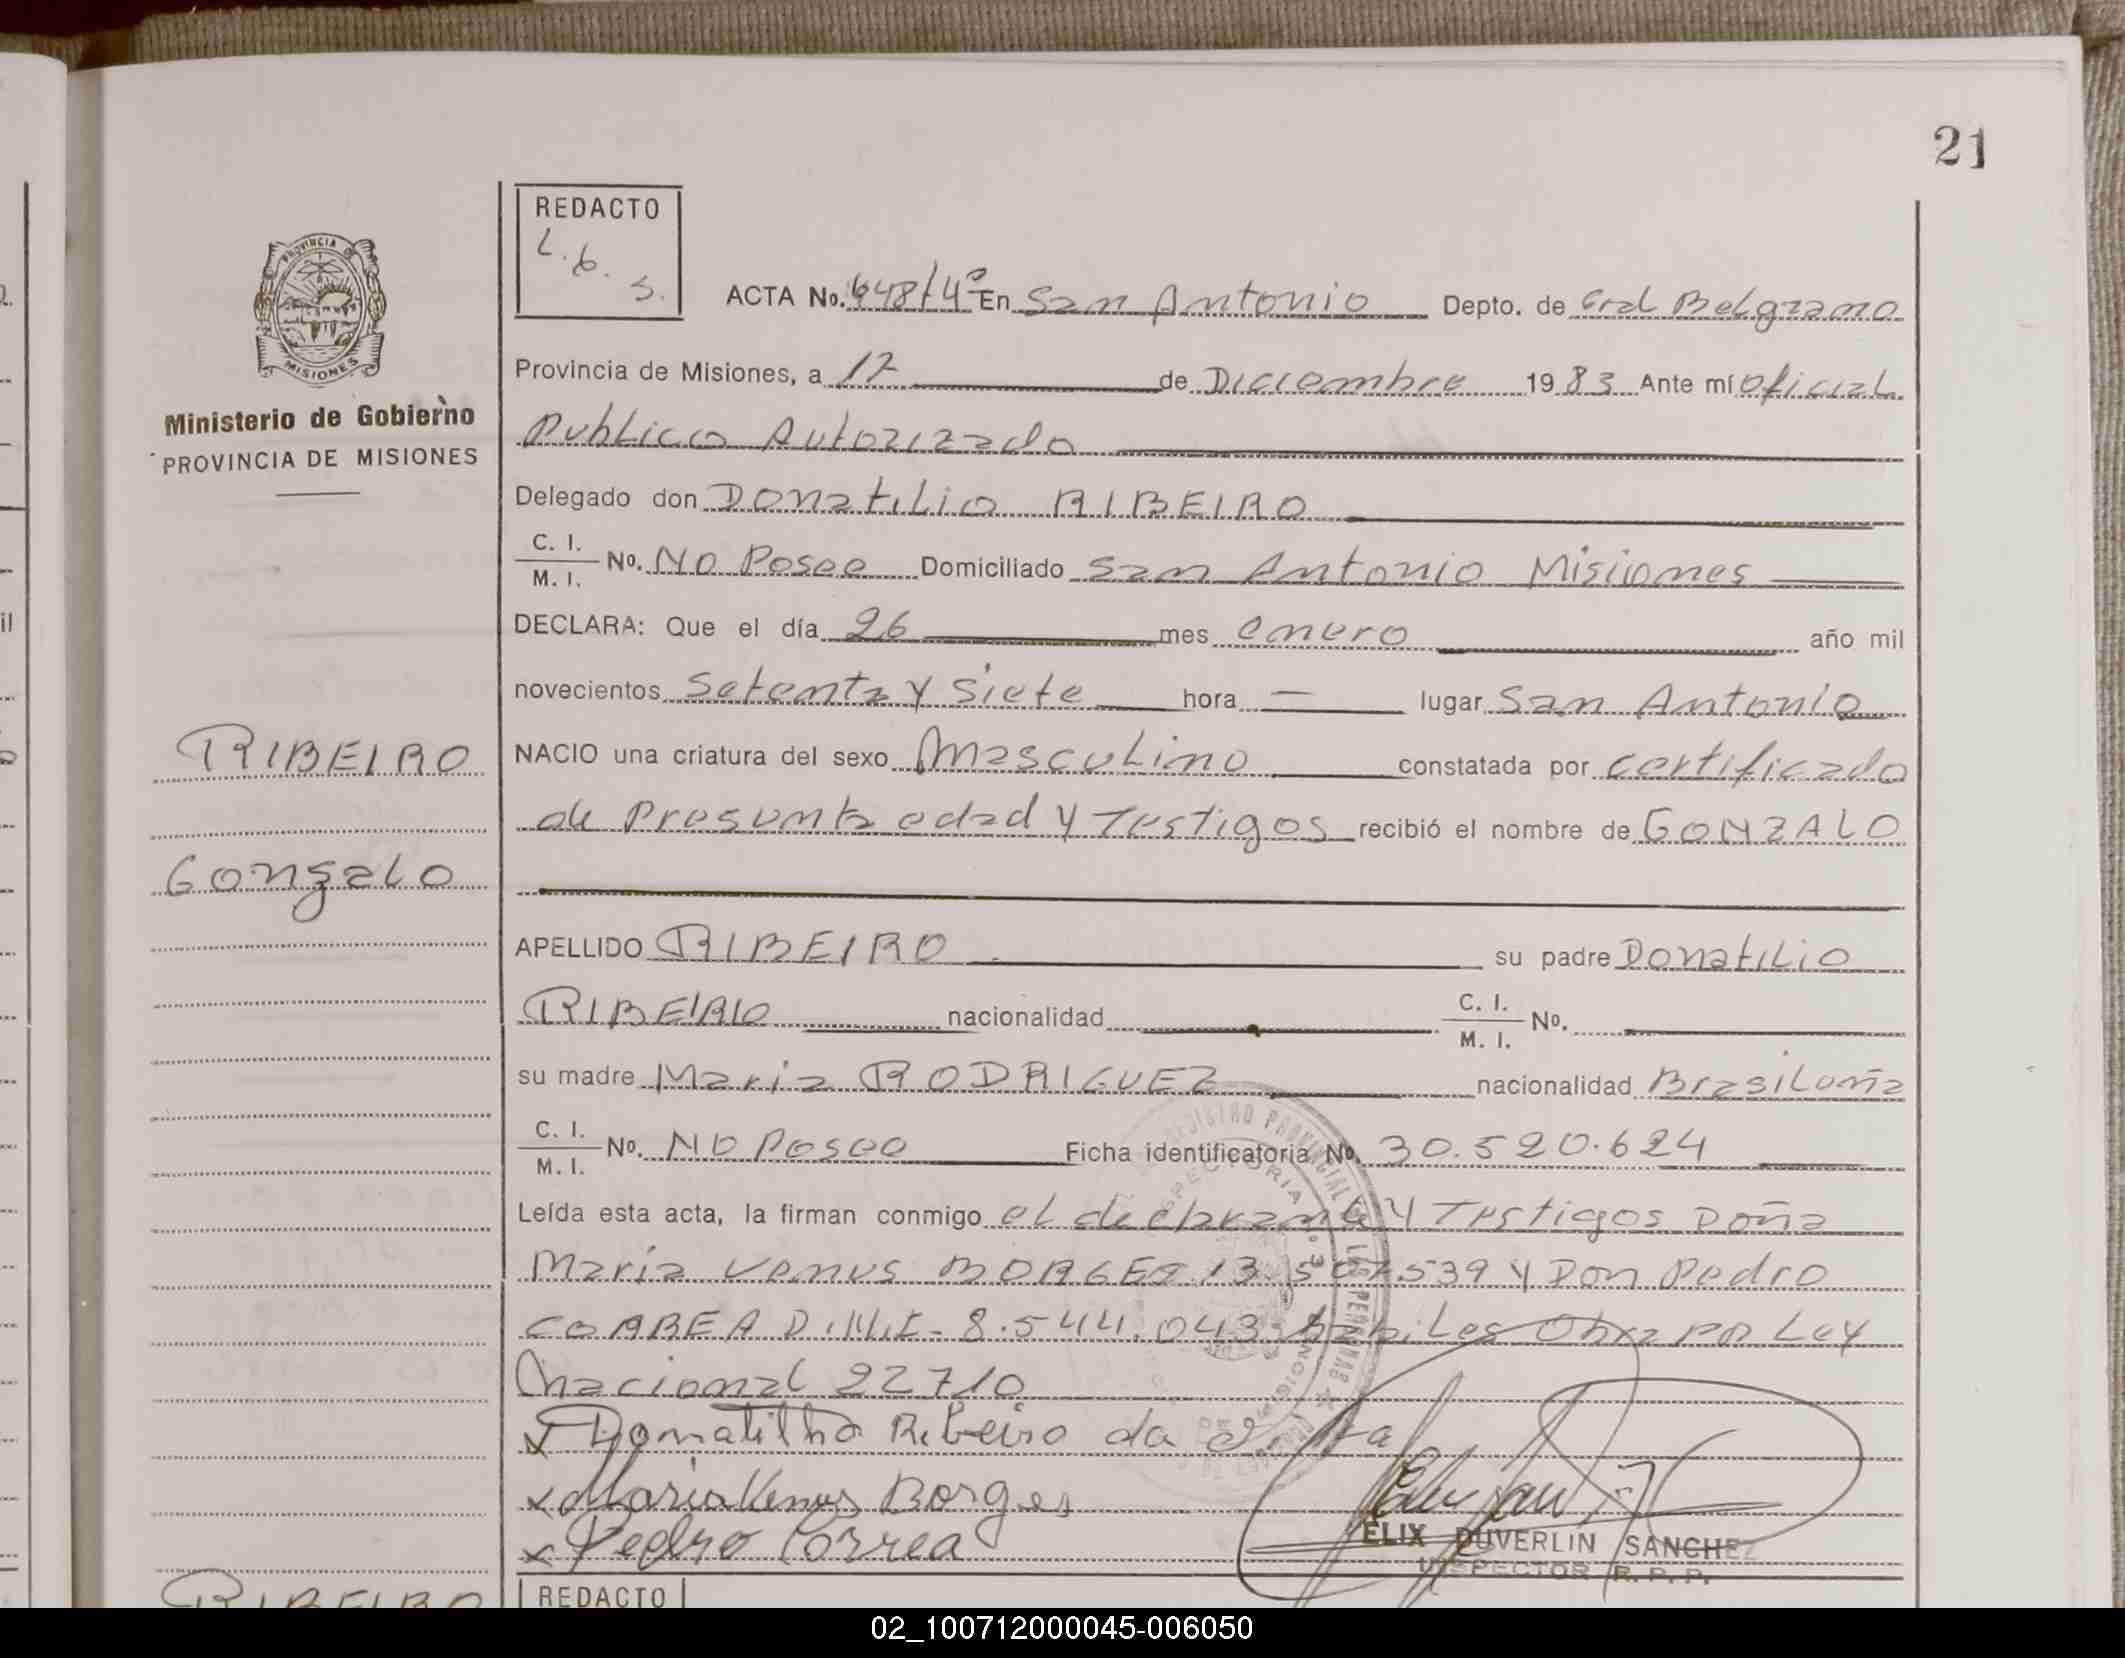 21
REDACTO
L. b. S.
ACTA No. 648/4º En San Antonio Depto. de Gral Belgrano
PROVINCIA DE MISIONES
Ministerio de Gobierno
PROVINCIA DE MISIONES
Provincia de Misiones, a 17 de Diciembre 1983 Ante mí oficial
Publico Autorizado
Delegado don Donatilio RIBEIRO
C. I. / M. I. No. No Posee Domiciliado San Antonio Misiones
DECLARA: Que el día 26 mes enero año mil
novecientos Setenta y Siete hora — lugar San Antonio
RIBEIRO
NACIO una criatura del sexo Masculino constatada por certificado
de Presunta edad y Testigos recibió el nombre de GONZALO
Gonzalo
APELLIDO RIBEIRO su padre Donatilio
RIBEIRO nacionalidad C. I. / M. I. No.
su madre Maria RODRIGUEZ nacionalidad Brasileña
C. I. / M. I. No. No Posee Ficha identificatoria No. 30.520.624
Leída esta acta, la firman conmigo el declarante y Testigos Doña
María Venus BORGES 13.507.539 y Don Pedro
CORREA D.M.I. 8.544.043 habiles Obra por Ley
Nacional 22710
Donatilho Ribeiro da Silva
Maria Venus Borges
Pedro Correa
ELIX DUVERLIN SANCHEZ
INSPECTOR R. P. P.
RIBEIRO
REDACTO
02_100712000045-006050